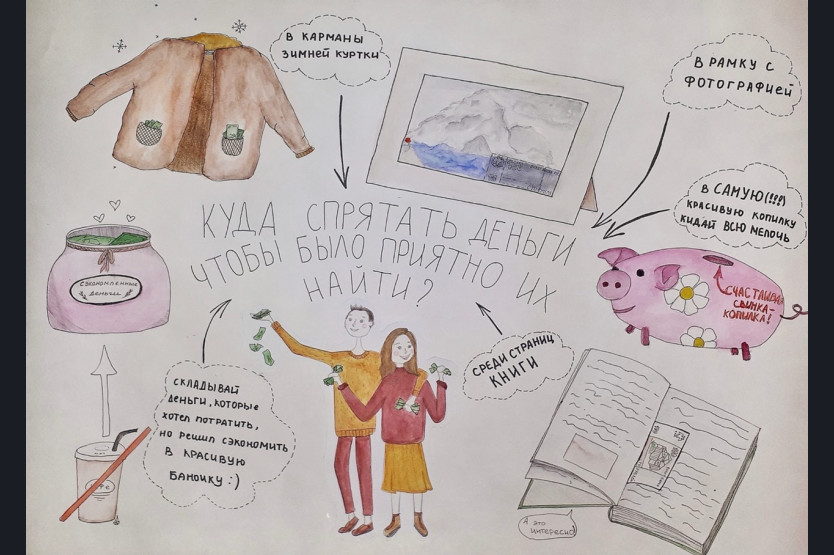 В КАРМАНЫ
ЗИМНЕЙ КУРТКИ
В РАМКУ С
ФОТОГРАФИЕЙ
КУДА СПРЯТАТЬ ДЕНЬГИ
ЧТОБЫ БЫЛО ПРИЯТНО ИХ
НАЙТИ?
В САМУЮ(!!!)
КРАСИВУЮ КОПИЛКУ
КИДАЙ ВСЮ МЕЛОЧЬ
СЧАСТЛИВАЯ
СВИНКА-
КОПИЛКА!
СЭКОНОМЛЕННЫЕ
деньги
СКЛАДЫВАЙ
ДЕНЬГИ, КОТОРЫЕ
ХОТЕЛ ПОТРАТИТЬ,
НО РЕШИЛ СЭКОНОМИТЬ
В КРАСИВУЮ
БАНОЧКУ :)
СРЕДИ СТРАНИЦ
КНИГИ
А ЭТО
ИНТЕРЕСНО